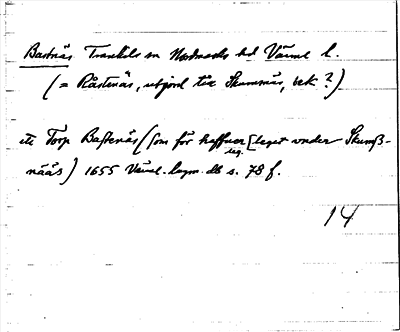 Bastnäs Trankils sn Nordmarks hd Värml l.
(= Råstenäs, utjord till Skumnäs, bek?)
ett Torp Baſtenäs (som för haffuer [leget under Skumß-
leg.
nääs) 1655 Värml. lagm. db s. 78 f.
14